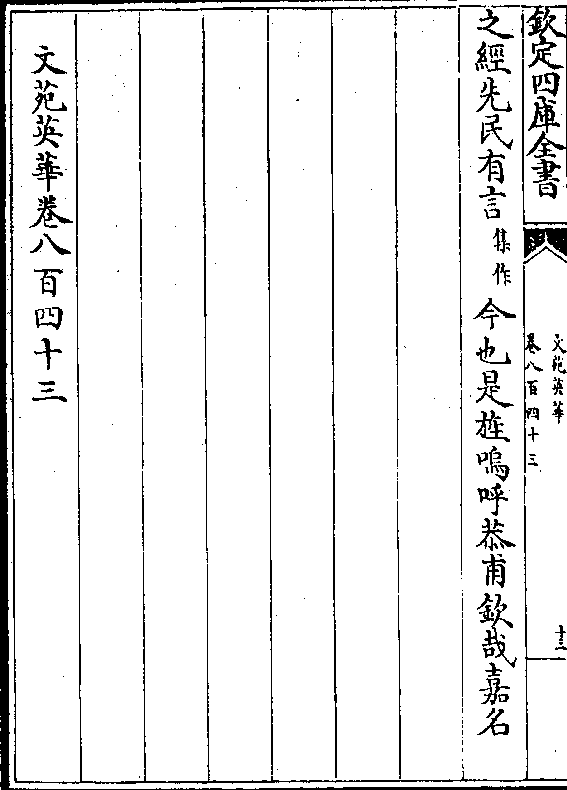 欽定四庫全書
文苑英華
卷八百四十三
十三
之經先民有言集作今也是旌嗚呼恭甫欽哉嘉名
文苑英華卷八百四十三